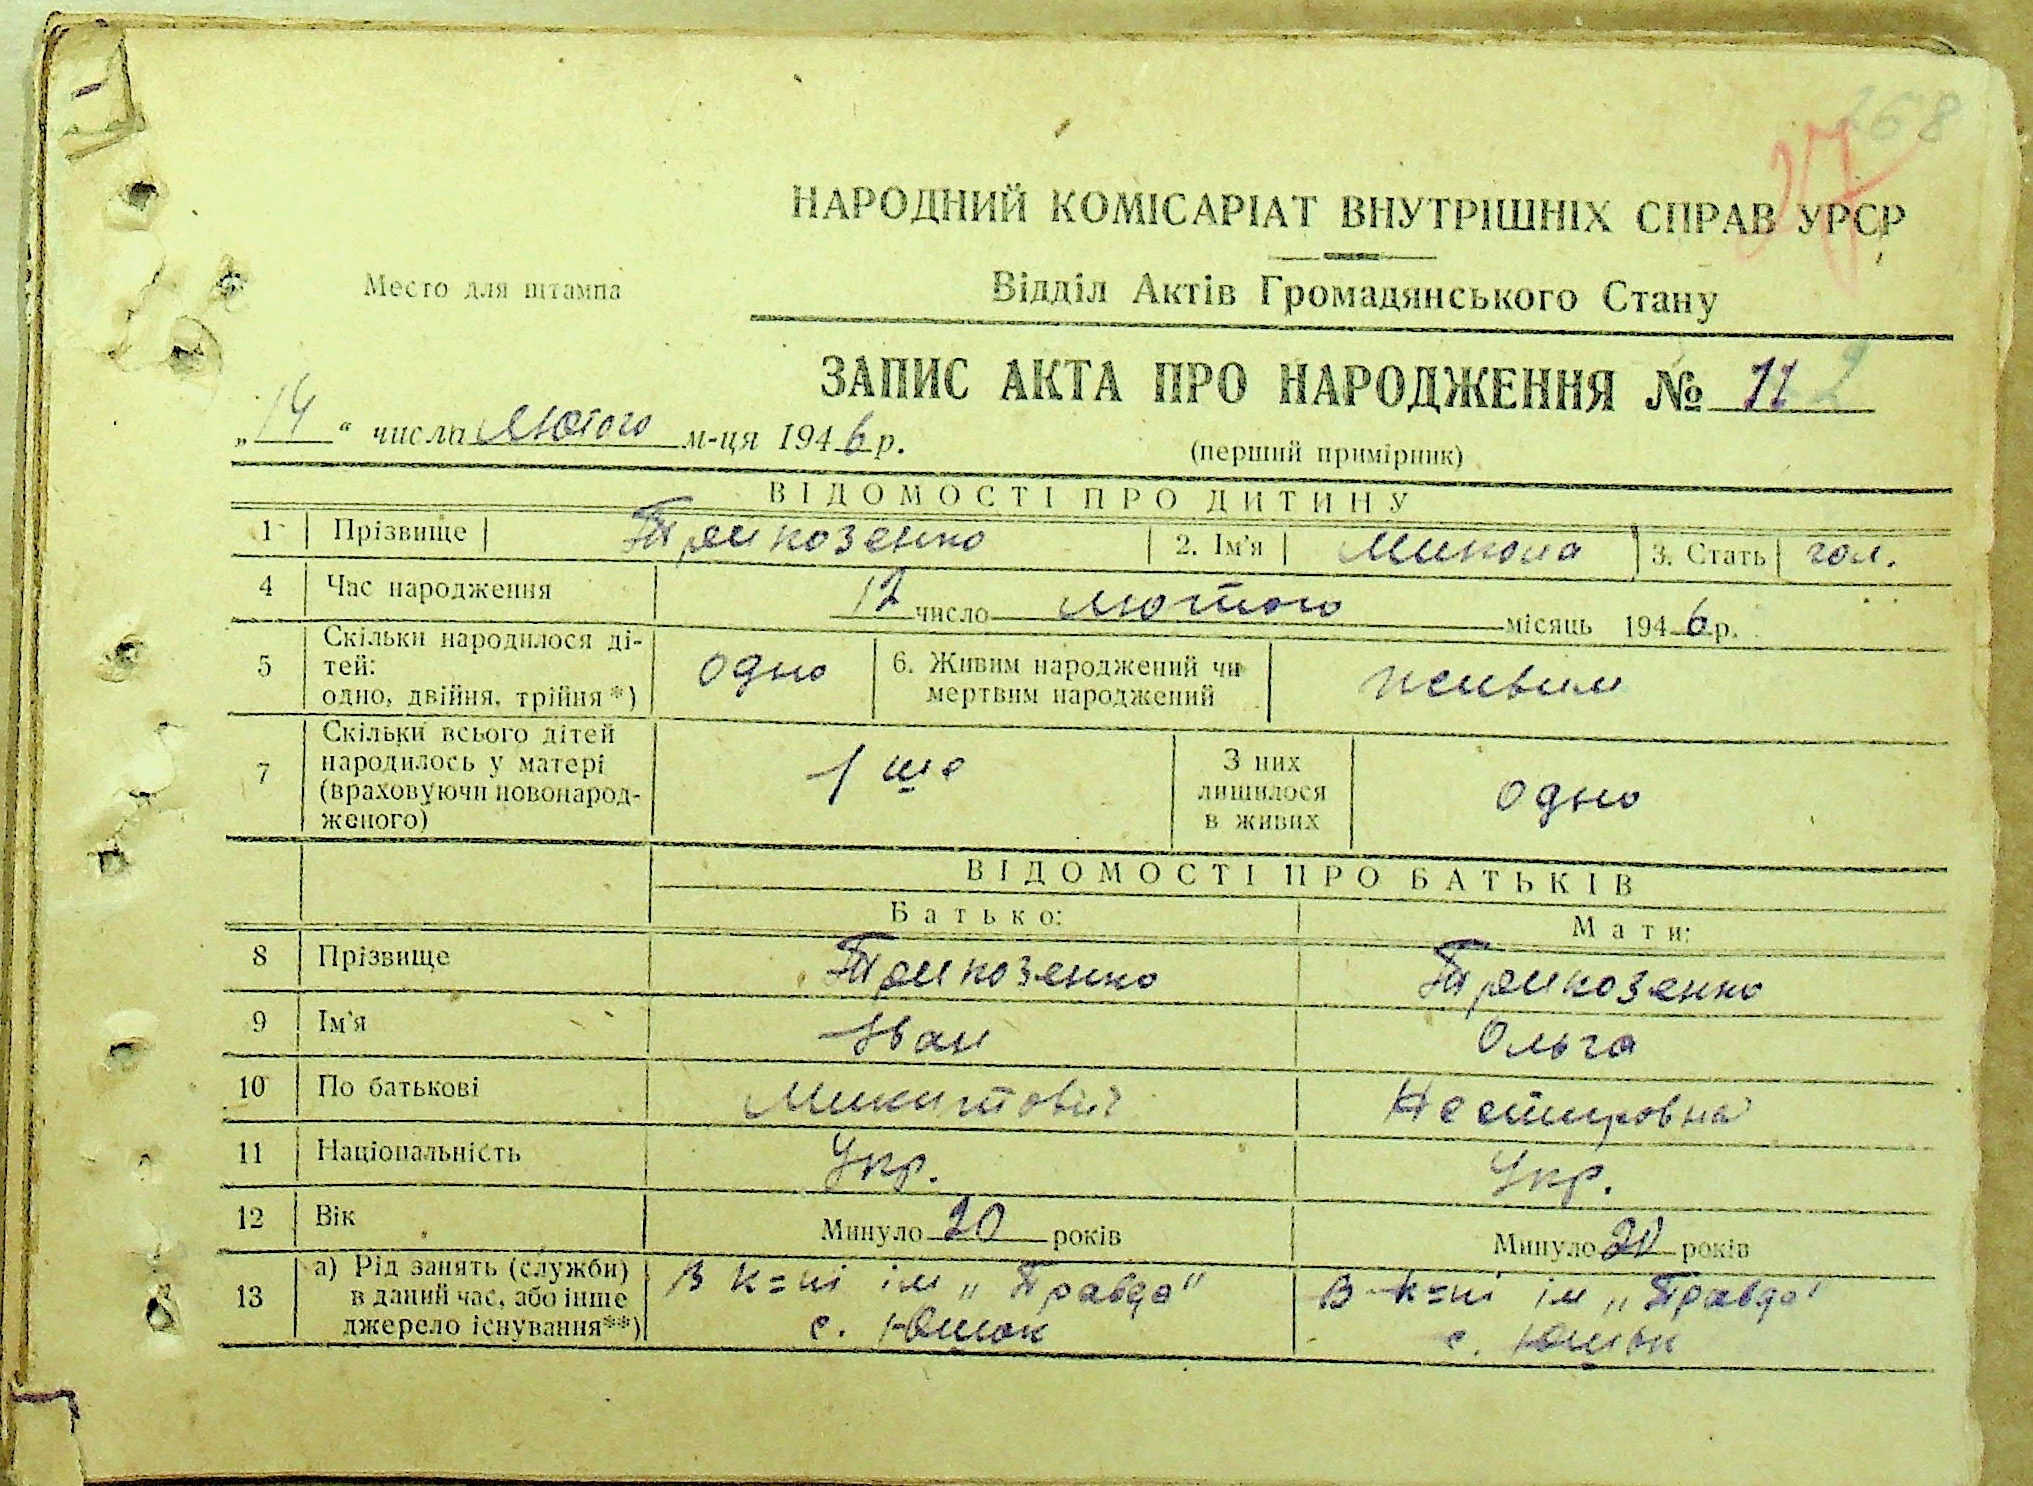 268
27
НАРОДНИЙ КОМІСАРІАТ ВНУТРІШНІХ СПРАВ УРСР
Место для штампа
Відділ Актів Громадянського Стану
ЗАПИС АКТА ПРО НАРОДЖЕННЯ № 11 2
„14“ числа Лютого м-ця 1946 р.
(перший примірник)
ВІДОМОСТІ ПРО ДИТИНУ
1 Прізвище Трикозенко 2. Ім'я Микола 3. Стать чол.
4 Час народження 12 число лютого місяць 1946 р.
5 Скільки народилося ді-
тей:
одно, двійня, трійня *) одно 6. Живим народжений чи
мертвим народжений живим
7 Скільки всього дітей
народилось у матері
(враховуючи новонарод-
женого) 1 ше З них
лишилося
в живих одно
ВІДОМОСТІ ПРО БАТЬКІВ
Батько: Мати:
8 Прізвище Трикозенко Трикозенко
9 Ім'я Іван Ольга
10 По батькові Микитович Нестировна
11 Національність Укр. Укр.
12 Вік Минуло 20 років Минуло 20 років
13 а) Рід занять (служби)
в даний час, або інше
джерело існування**)
В к=пі ім „Правда"
с. Юшок
В к=пі ім „Правда"
с.